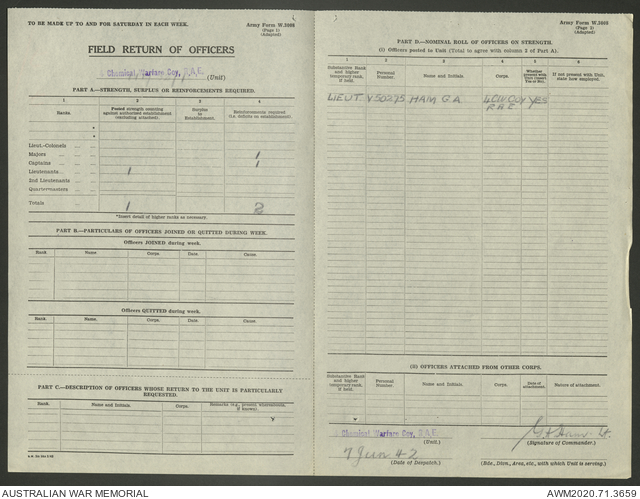 TO BE MADE UP TO AND FOR SATURDAY IN EACH WEEK.
Army Form W.3008
(Page 1)
(Adapted)
FIELD RETURN OF OFFICERS
Chemical Warfare Coy, R.A.E. (Unit)
PART A—STRENGTH, SURPLUS OR REINFORCEMENTS REQUIRED.
1 2 3 4
Ranks.
Posted strength counting against authorised establishment (excluding attached).
Surplus to Establishment.
Reinforcements required (i.e. deficits on establishment).
*
*
Lieut.-Colonels
Majors 1
Captains 1
Lieutenants 1
2nd Lieutenants
Quartermasters
Totals 1 2
*Insert detail of higher ranks as necessary.
PART B—PARTICULARS OF OFFICERS JOINED OR QUITTED DURING WEEK.
Officers JOINED during week.
Rank. Name. Corps. Date. Cause.
Officers QUITTED during week.
Rank. Name. Corps. Date. Cause.
PART C—DESCRIPTION OF OFFICERS WHOSE RETURN TO THE UNIT IS PARTICULARLY REQUESTED.
Rank. Name and Initials. Corps. Remarks (e.g., present whereabouts, if known).
Army Form W.3008
(Page 2)
(Adapted)
PART D—NOMINAL ROLL OF OFFICERS ON STRENGTH.
(i) Officers posted to Unit (Total to agree with column 2 of Part A).
1 2 3 4 5 6
Substantive Rank and higher temporary rank, if held.
Personal Number.
Name and Initials.
Corps.
Whether present with Unit (insert Yes or No).
If not present with Unit, state how employed.
LIEUT V50275 HAM G.A 4 CW COY YES
R.A.E
(ii) OFFICERS ATTACHED FROM OTHER CORPS.
Substantive Rank and higher temporary rank, if held.
Personal Number.
Name and Initials.
Corps.
Date of attachment.
Nature of attachment.
Chemical Warfare Coy, R.A.E.
(Unit.)
G A Ham Lt.
(Signature of Commander.)
7 Jun 42
(Date of Despatch.)
(Bde., Divn., Area, etc., with which Unit is serving).
AUSTRALIAN WAR MEMORIAL
AWM2020.71.3659